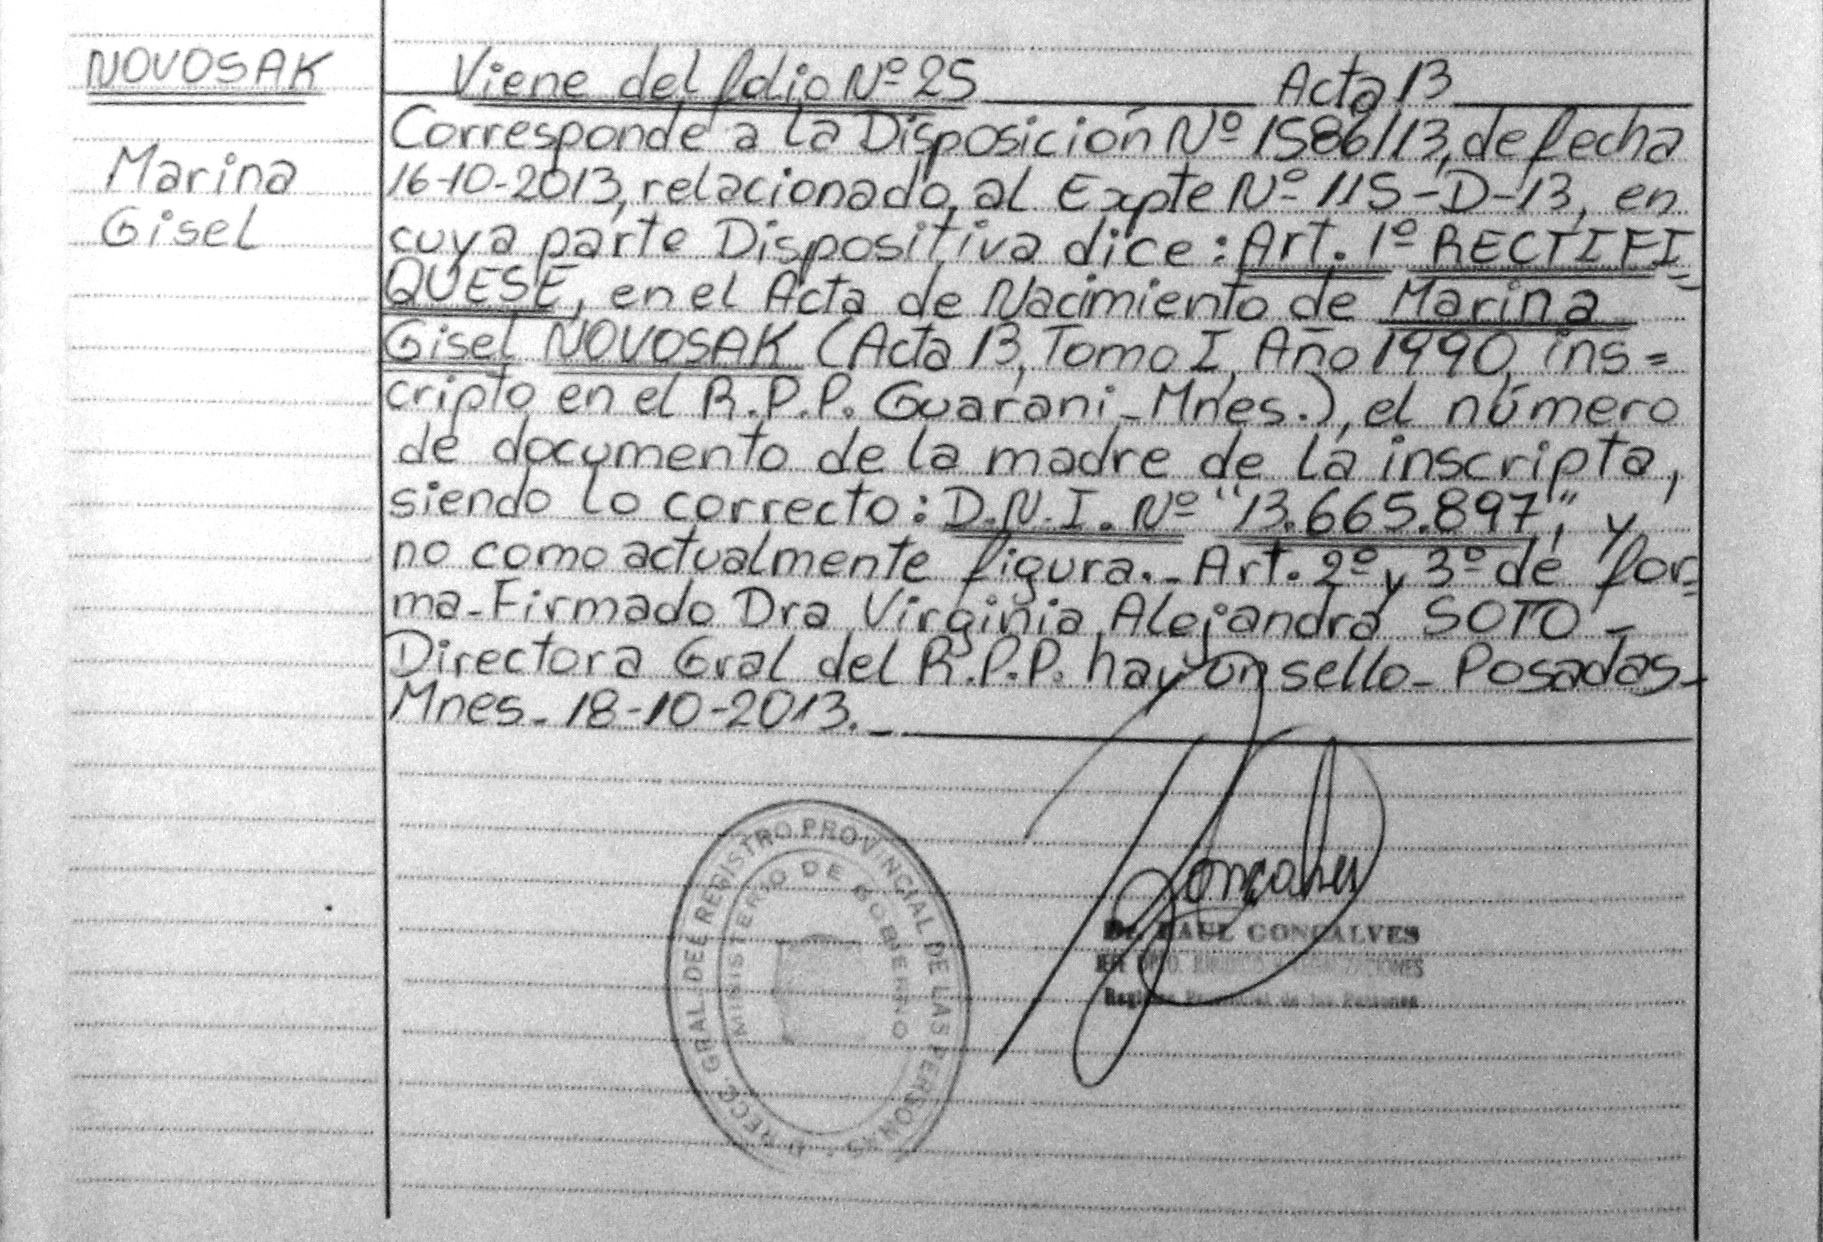 NOVOSAK
Marina
Gisel
Viene del folio Nº 25 Acta 13
Corresponde a la Disposición Nº 1586/13, de fecha
16-10-2013, relacionado al Expte Nº 115-D-13, en
cuya parte Dispositiva dice: Art. 1º RECTIFI=
QUESE, en el Acta de Nacimiento de Marina
Gisel NOVOSAK (Acta 13, Tomo I, Año 1990, ins=
cripto en el R.P.P. Guarani-Mnes.), el número
de documento de la madre de la inscripta,
siendo lo correcto: D.N.I. Nº "13.665.897", y
no como actualmente figura.- Art. 2º y 3º de for=
ma-Firmado Dra Virginia Alejandra SOTO-
Directora Gral del R.P.P. hay un sello- Posadas-
Mnes- 18-10-2013.-
DIRECC. GRAL. DE REGISTRO PROVINCIAL DE LAS PERSONAS
MINISTERIO DE GOBIERNO
Goncalves
Dr. RAUL GONCALVES
Registro Provincial de las Personas